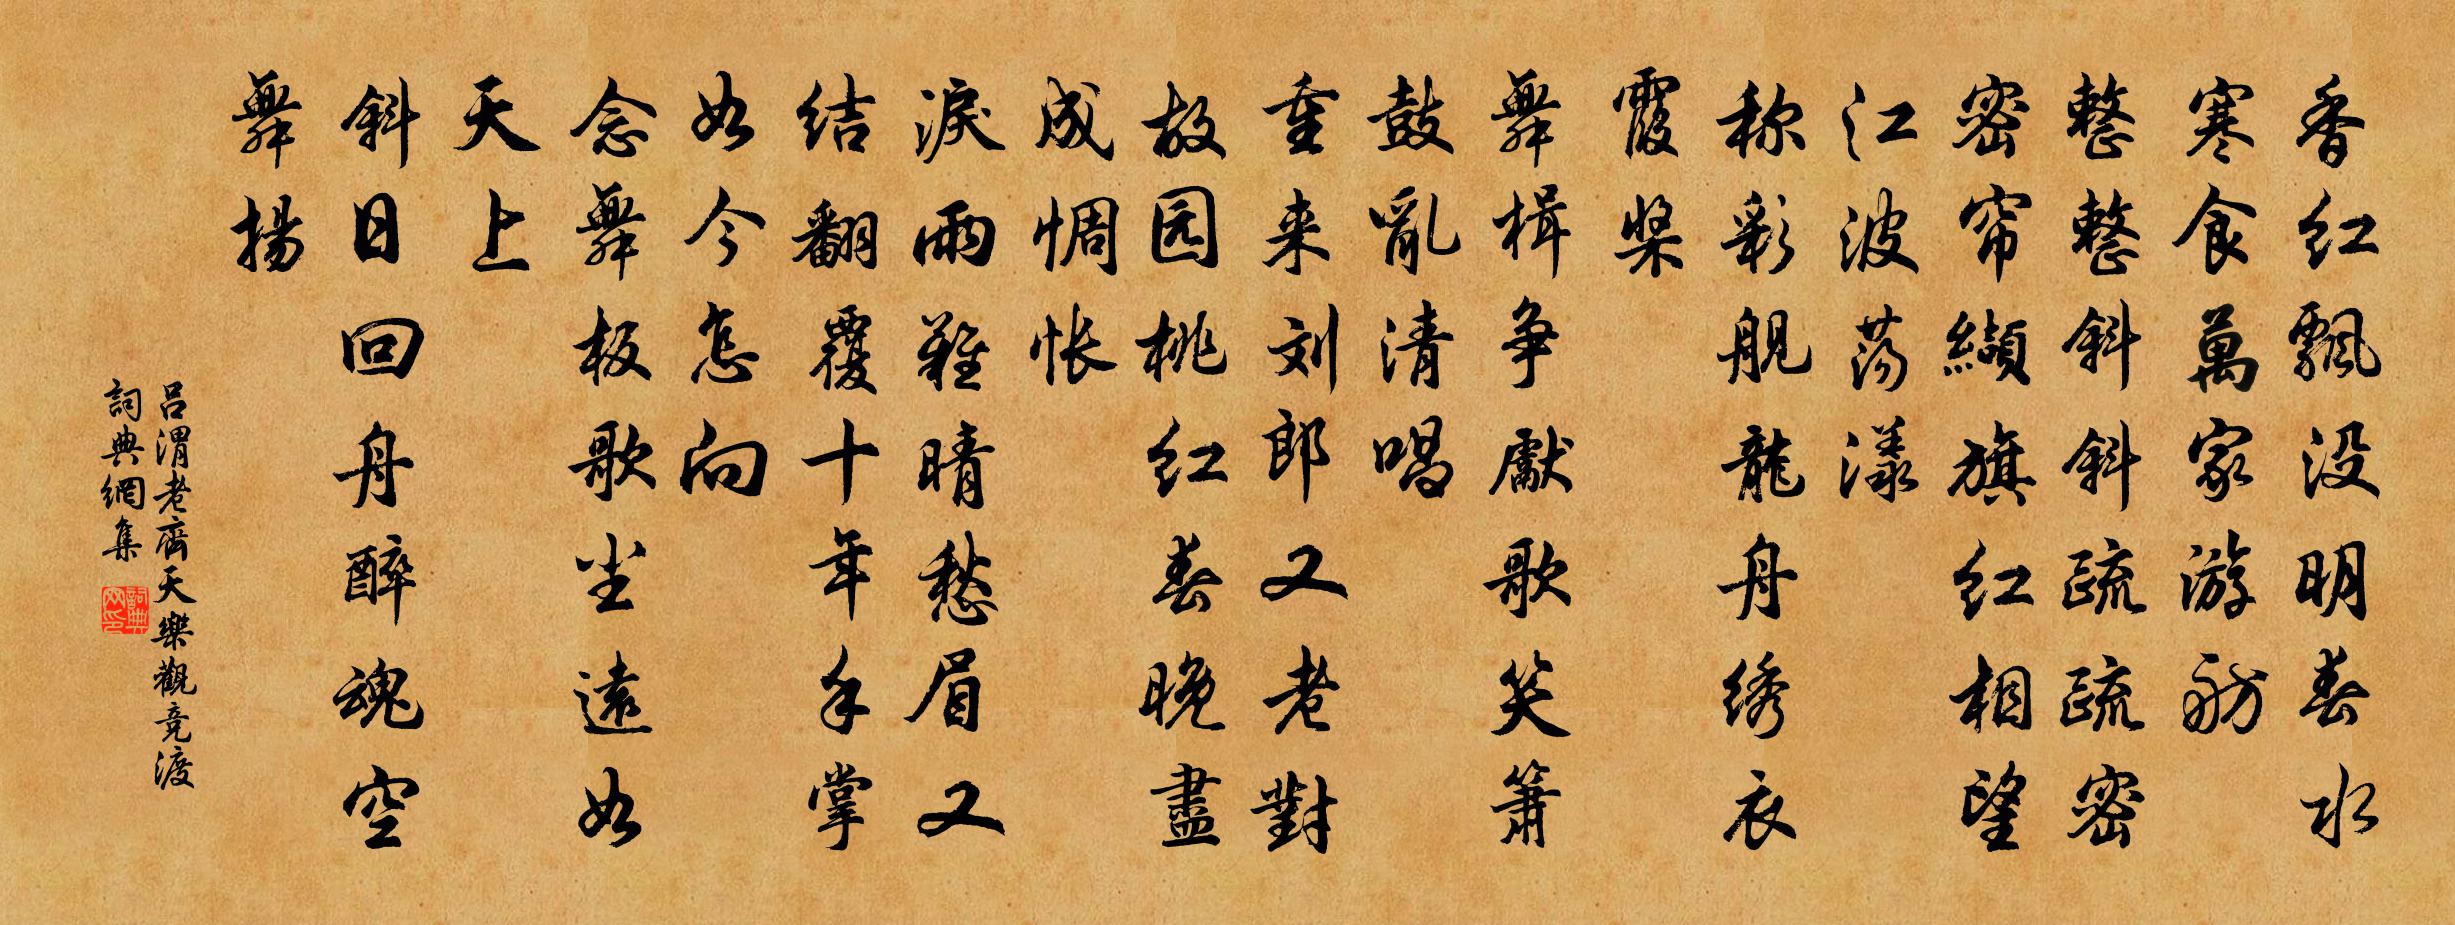 香红飘没明春水
寒食萬家游舫
整整斜斜疏疏密
密帘缬旗红相望
江波荡漾
称彩舰龍舟绣衣
霞桨
舞楫争獻歌笑箫
鼓亂清唱
重来刘郎又老對
故园桃红春晚盡
成惆怅
淚雨難晴愁眉又
结翻覆十年手掌
如今怎向
念舞板歌尘遠如
天上
斜日回舟醉魂空
舞揚
吕渭老齊天樂觀竞渡
詞典網集
詞典网印